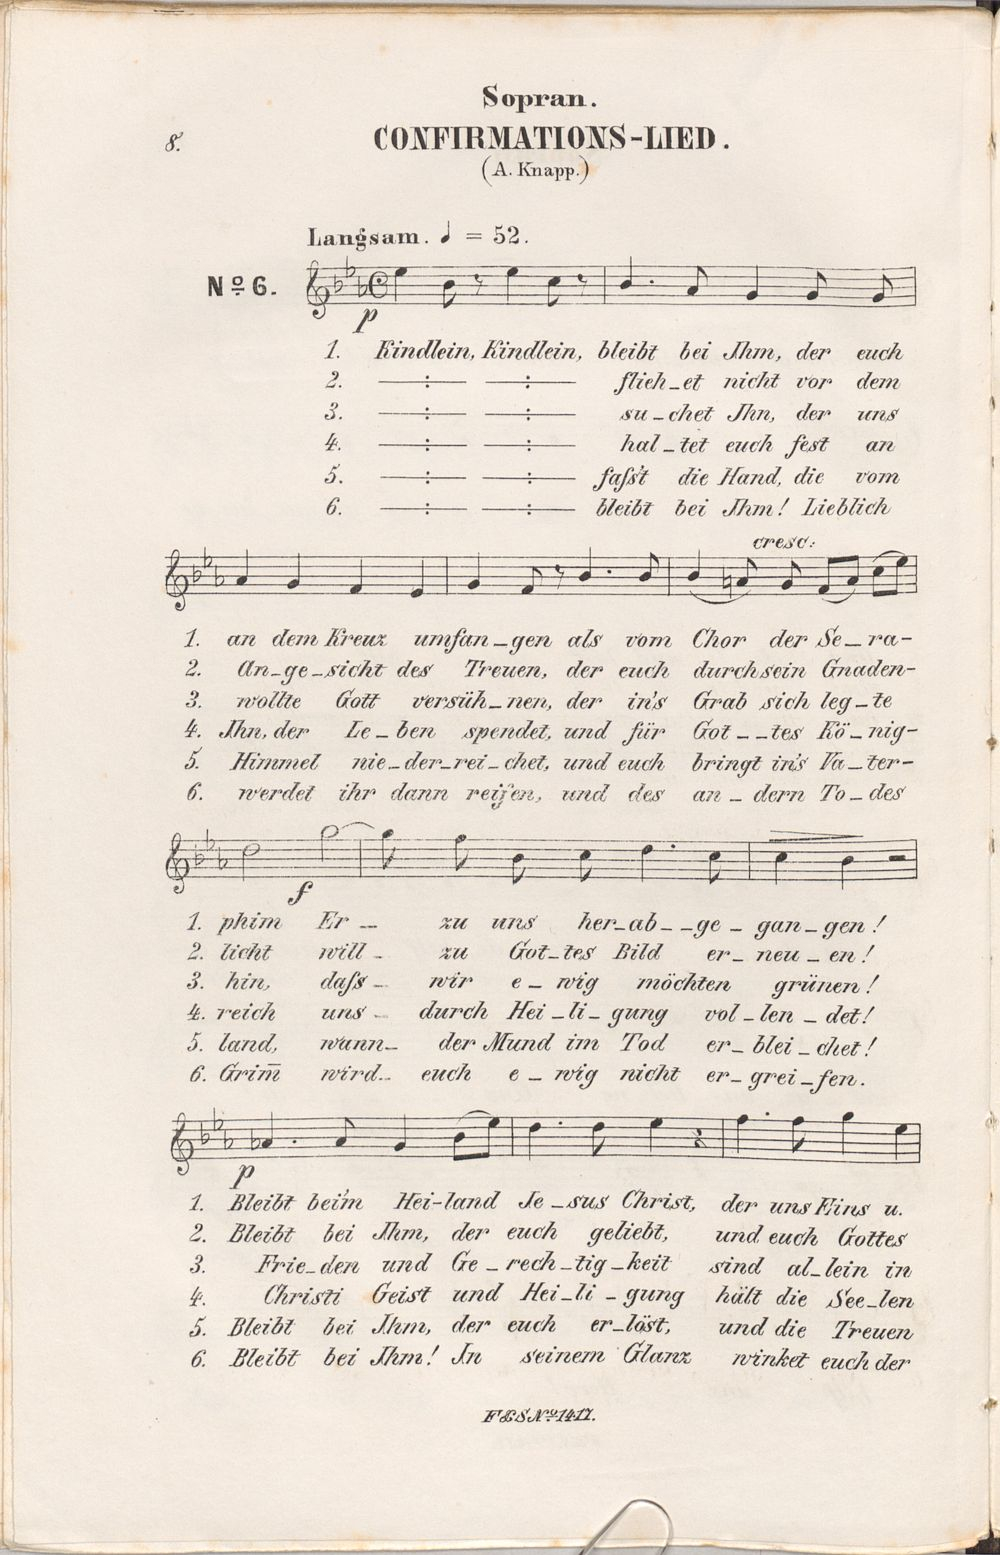 Sopran.
8.
CONFIRMATIONS-LIED.
(A. Knapp.)
Langsam. ♩ = 52.
Nº 6.
p
1. Kindlein, Kindlein, bleibt bei Ihm, der euch
2. —:— —:— flieh_et nicht vor dem
3. —:— —:— su_chet Ihn, der uns
4. —:— —:— hal_tet euch fest an
5. —:— —:— faſs't die Hand, die vom
6. —:— —:— bleibt bei Ihm! Lieblich
cresc:
1. an dem Kreuz umfan_gen als vom Chor der Se_ra-
2. An_ge_sicht des Treuen, der euch durch sein Gnaden-
3. wollte Gott versüh_nen, der in's Grab sich leg_te
4. Ihn, der Le_ben spendet, und für Got__tes Kö_nig-
5. Himmel nie_der_rei_chet, und euch bringt in's Va_ter-
6. werdet ihr dann reifen, und des an_dern To_des
f
1. phim Er_ zu uns her_ab__ge_gan_gen!
2. licht will_ zu Got_tes Bild er_neu_en!
3. hin, daſs_ wir e_wig möchten grünen!
4. reich uns_ durch Hei_li_gung vol_len_det!
5. land, wann_ der Mund im Tod er_blei_chet!
6. Grim̅ wird_ euch e_wig nicht er_grei_fen.
p
1. Bleibt bei'm Hei-land Je_sus Christ, der uns Eins u.
2. Bleibt bei Ihm, der euch geliebt, und euch Gottes
3. Frie_den und Ge_rech_tig_keit sind al_lein in
4. Christi Geist und Hei_li_gung hält die See_len
5. Bleibt bei Ihm, der euch er_löst, und die Treuen
6. Bleibt bei Ihm! In seinem Glanz winket euch der
F&S Nº 1417.